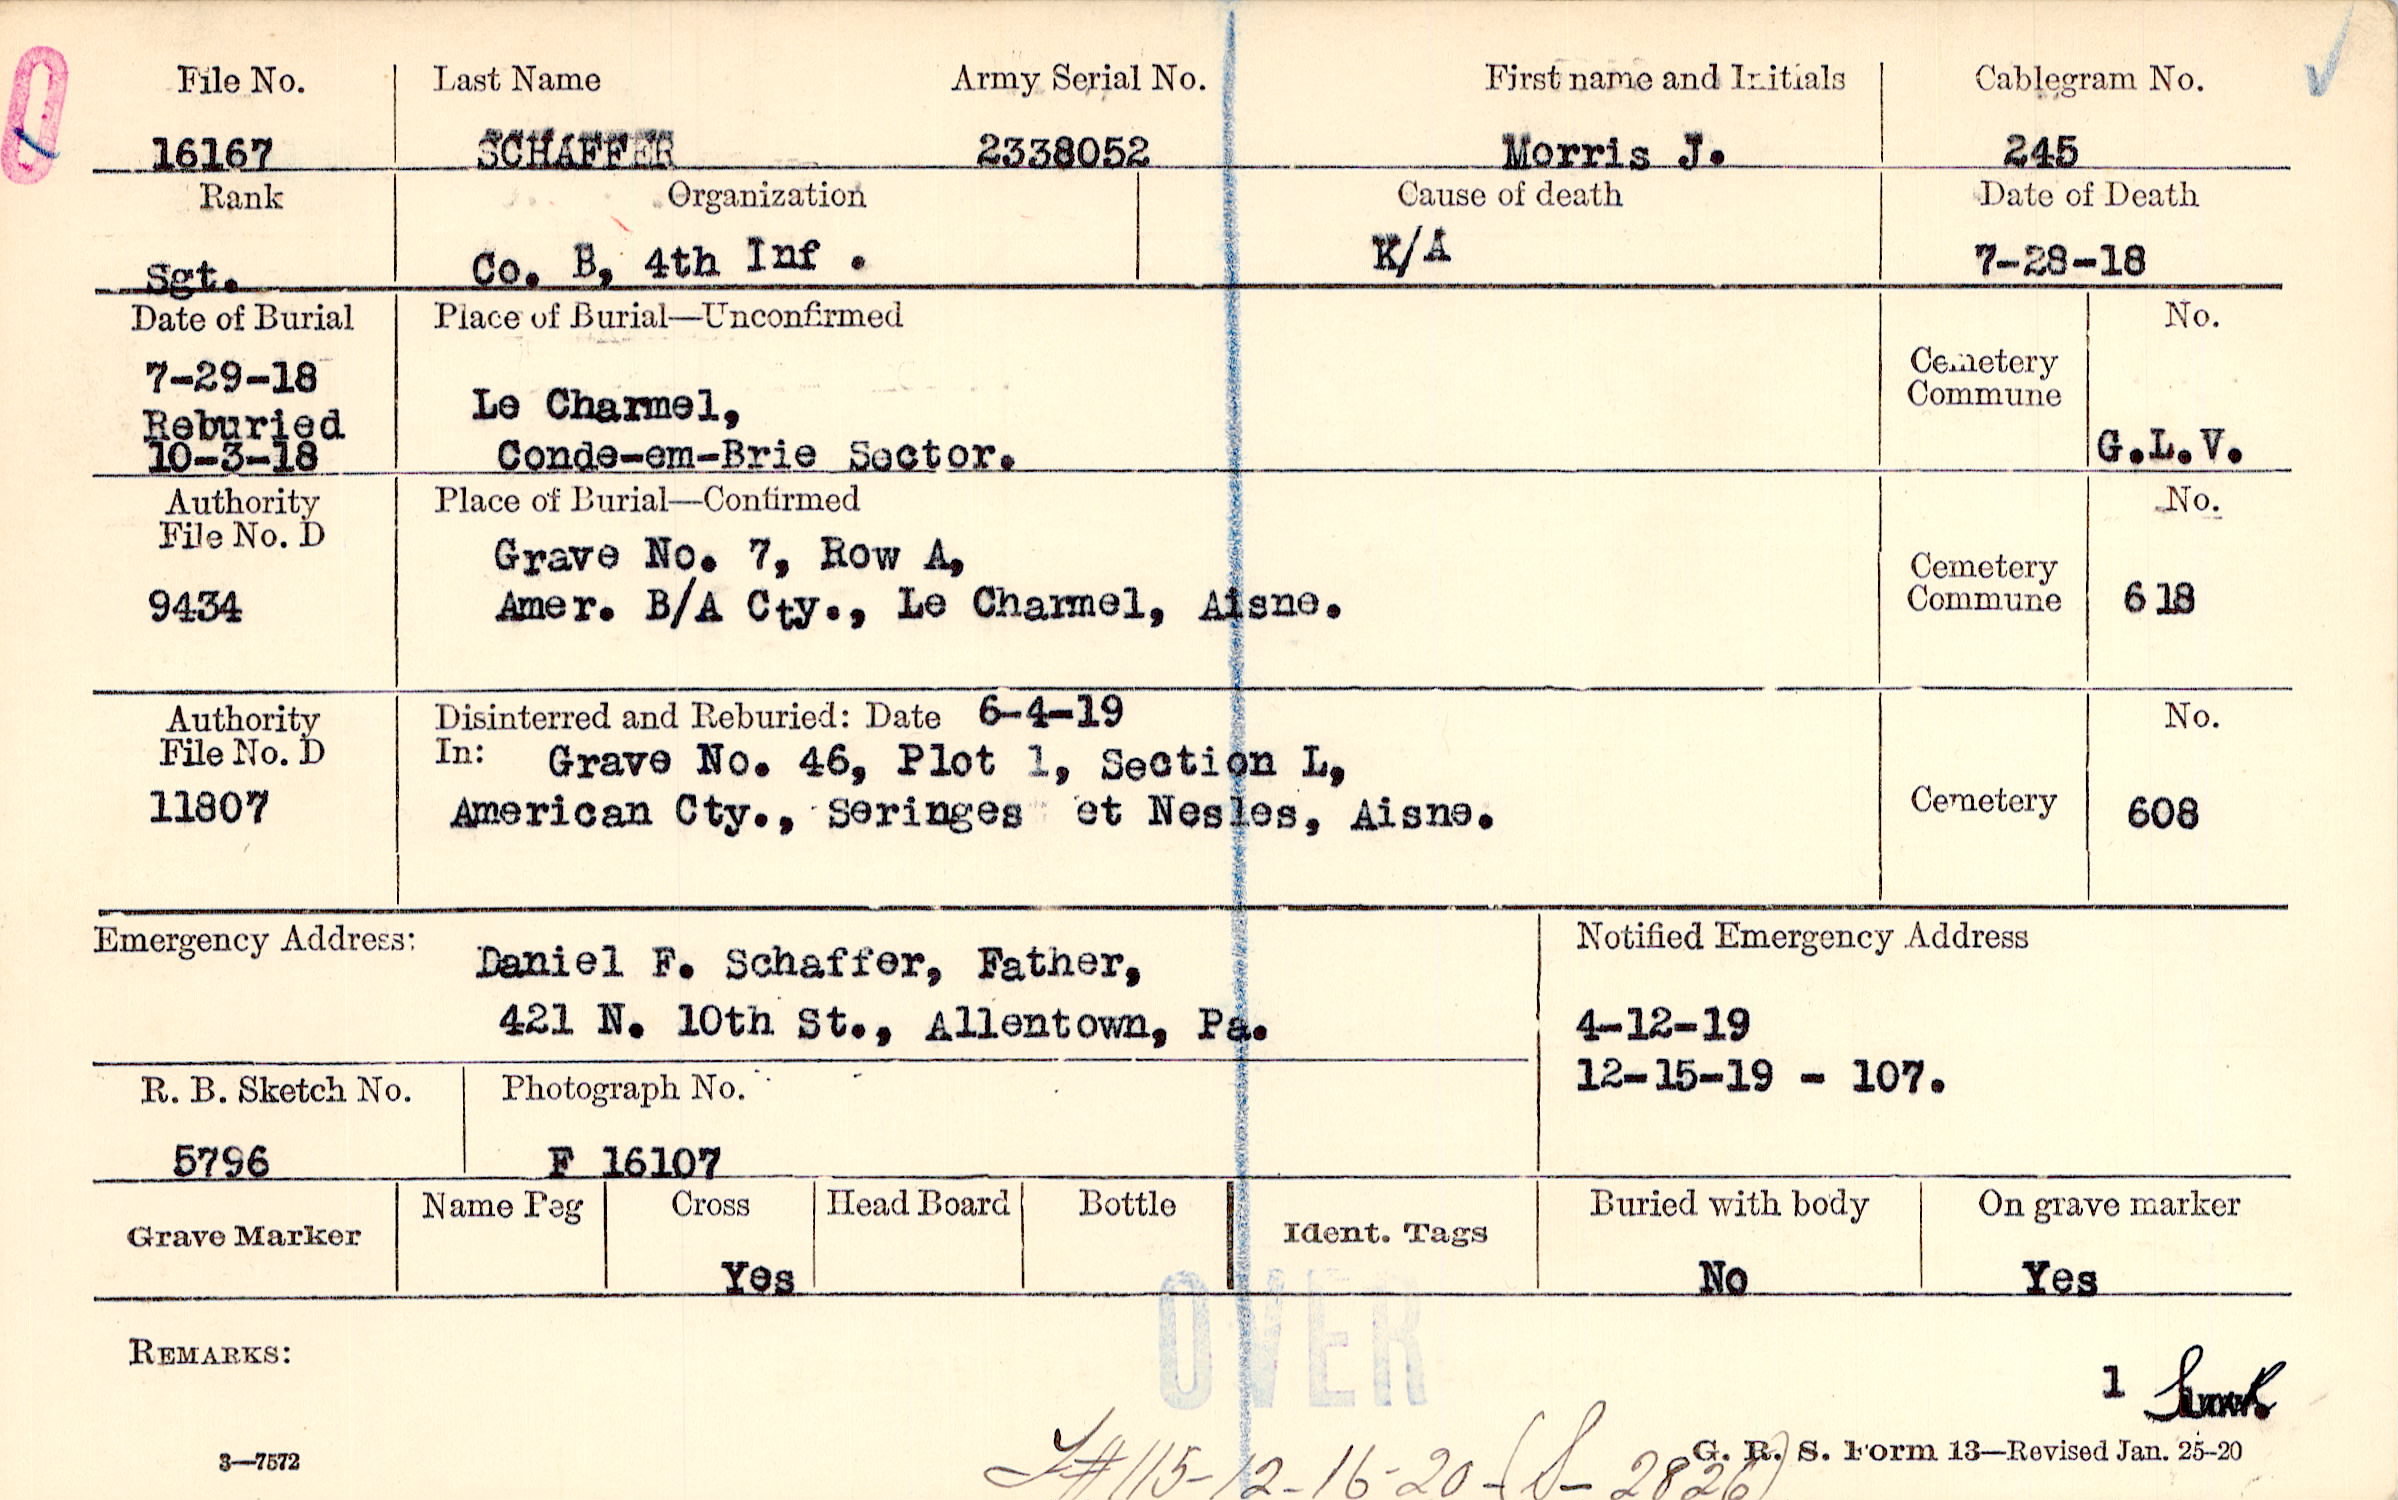 File No. Last Name Army Serial No. First name and Initials Cablegram No.
16167 SCHAFFER 2338052 Morris J. 245
Rank Organization Cause of death Date of Death
Sgt. Co. B, 4th Inf . K/A 7-28-18
Date of Burial Place of Burial—Unconfirmed No.
7-29-18 Cemetery
Le Charmel, Commune
Reburied
10-3-18 Conde-em-Brie Sector. G.L.V.
Authority Place of Burial—Confirmed No.
File No. D
Grave No. 7, Row A, Cemetery
9434 Amer. B/A Cty., Le Charmel, Aisne. Commune 618
Authority Disinterred and Reburied: Date 6-4-19 No.
File No. D In: Grave No. 46, Plot 1, Section L,
11807 American Cty., Seringes et Nesles, Aisne. Cemetery 608
Emergency Address: Notified Emergency Address
Daniel F. Schaffer, Father,
421 N. 10th St., Allentown, Pa. 4-12-19
12-15-19 - 107.
R. B. Sketch No. Photograph No.
5796 F 16107
Name Peg Cross Head Board Bottle Buried with body On grave marker
Grave Marker Ident. Tags
Yes No Yes
OVER
REMARKS:
1
3—7572 G. R. S. Form 13—Revised Jan. 25-20
#115-12-16-20-(S-2826)